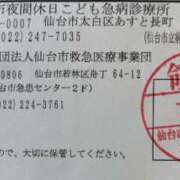 市夜間休日こども急病診療所
-0007 仙台市太白区あすと長町
022)247-7035 (仙台市立病
団法人仙台市救急医療事業団
0806 仙台市若林区舟丁 64-12
台市急患センター2F)
022)224-3761
ので、大切に保管してください。